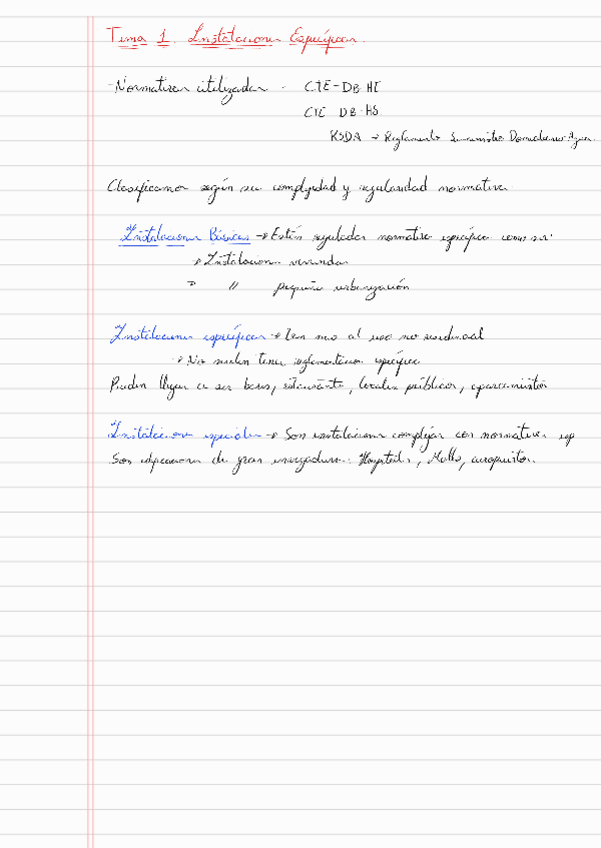 Tema 1. Instalaciones Específicas.
- Normativas utilizadas - CTE-DB-HE
CTE DB-HS
RSDA → Reglamento Suministro Domiciliario Agua.
Clasificamos según su complejidad y regularidad normativa
Instalaciones Básicas → Están reguladas normativa específica como son:
→ Instalaciones viviendas
→ " pequeña urbanización
Instalaciones específicas → al uso no residencial
→ No suelen tener reglamentación específica
Pueden llegar a ser bares, restaurante, locales públicos, aparcamientos
Instalaciones especiales → Son instalaciones complejas con normativa esp
Son edificaciones de gran envergadura: Hospitales, Malls, aeropuertos.